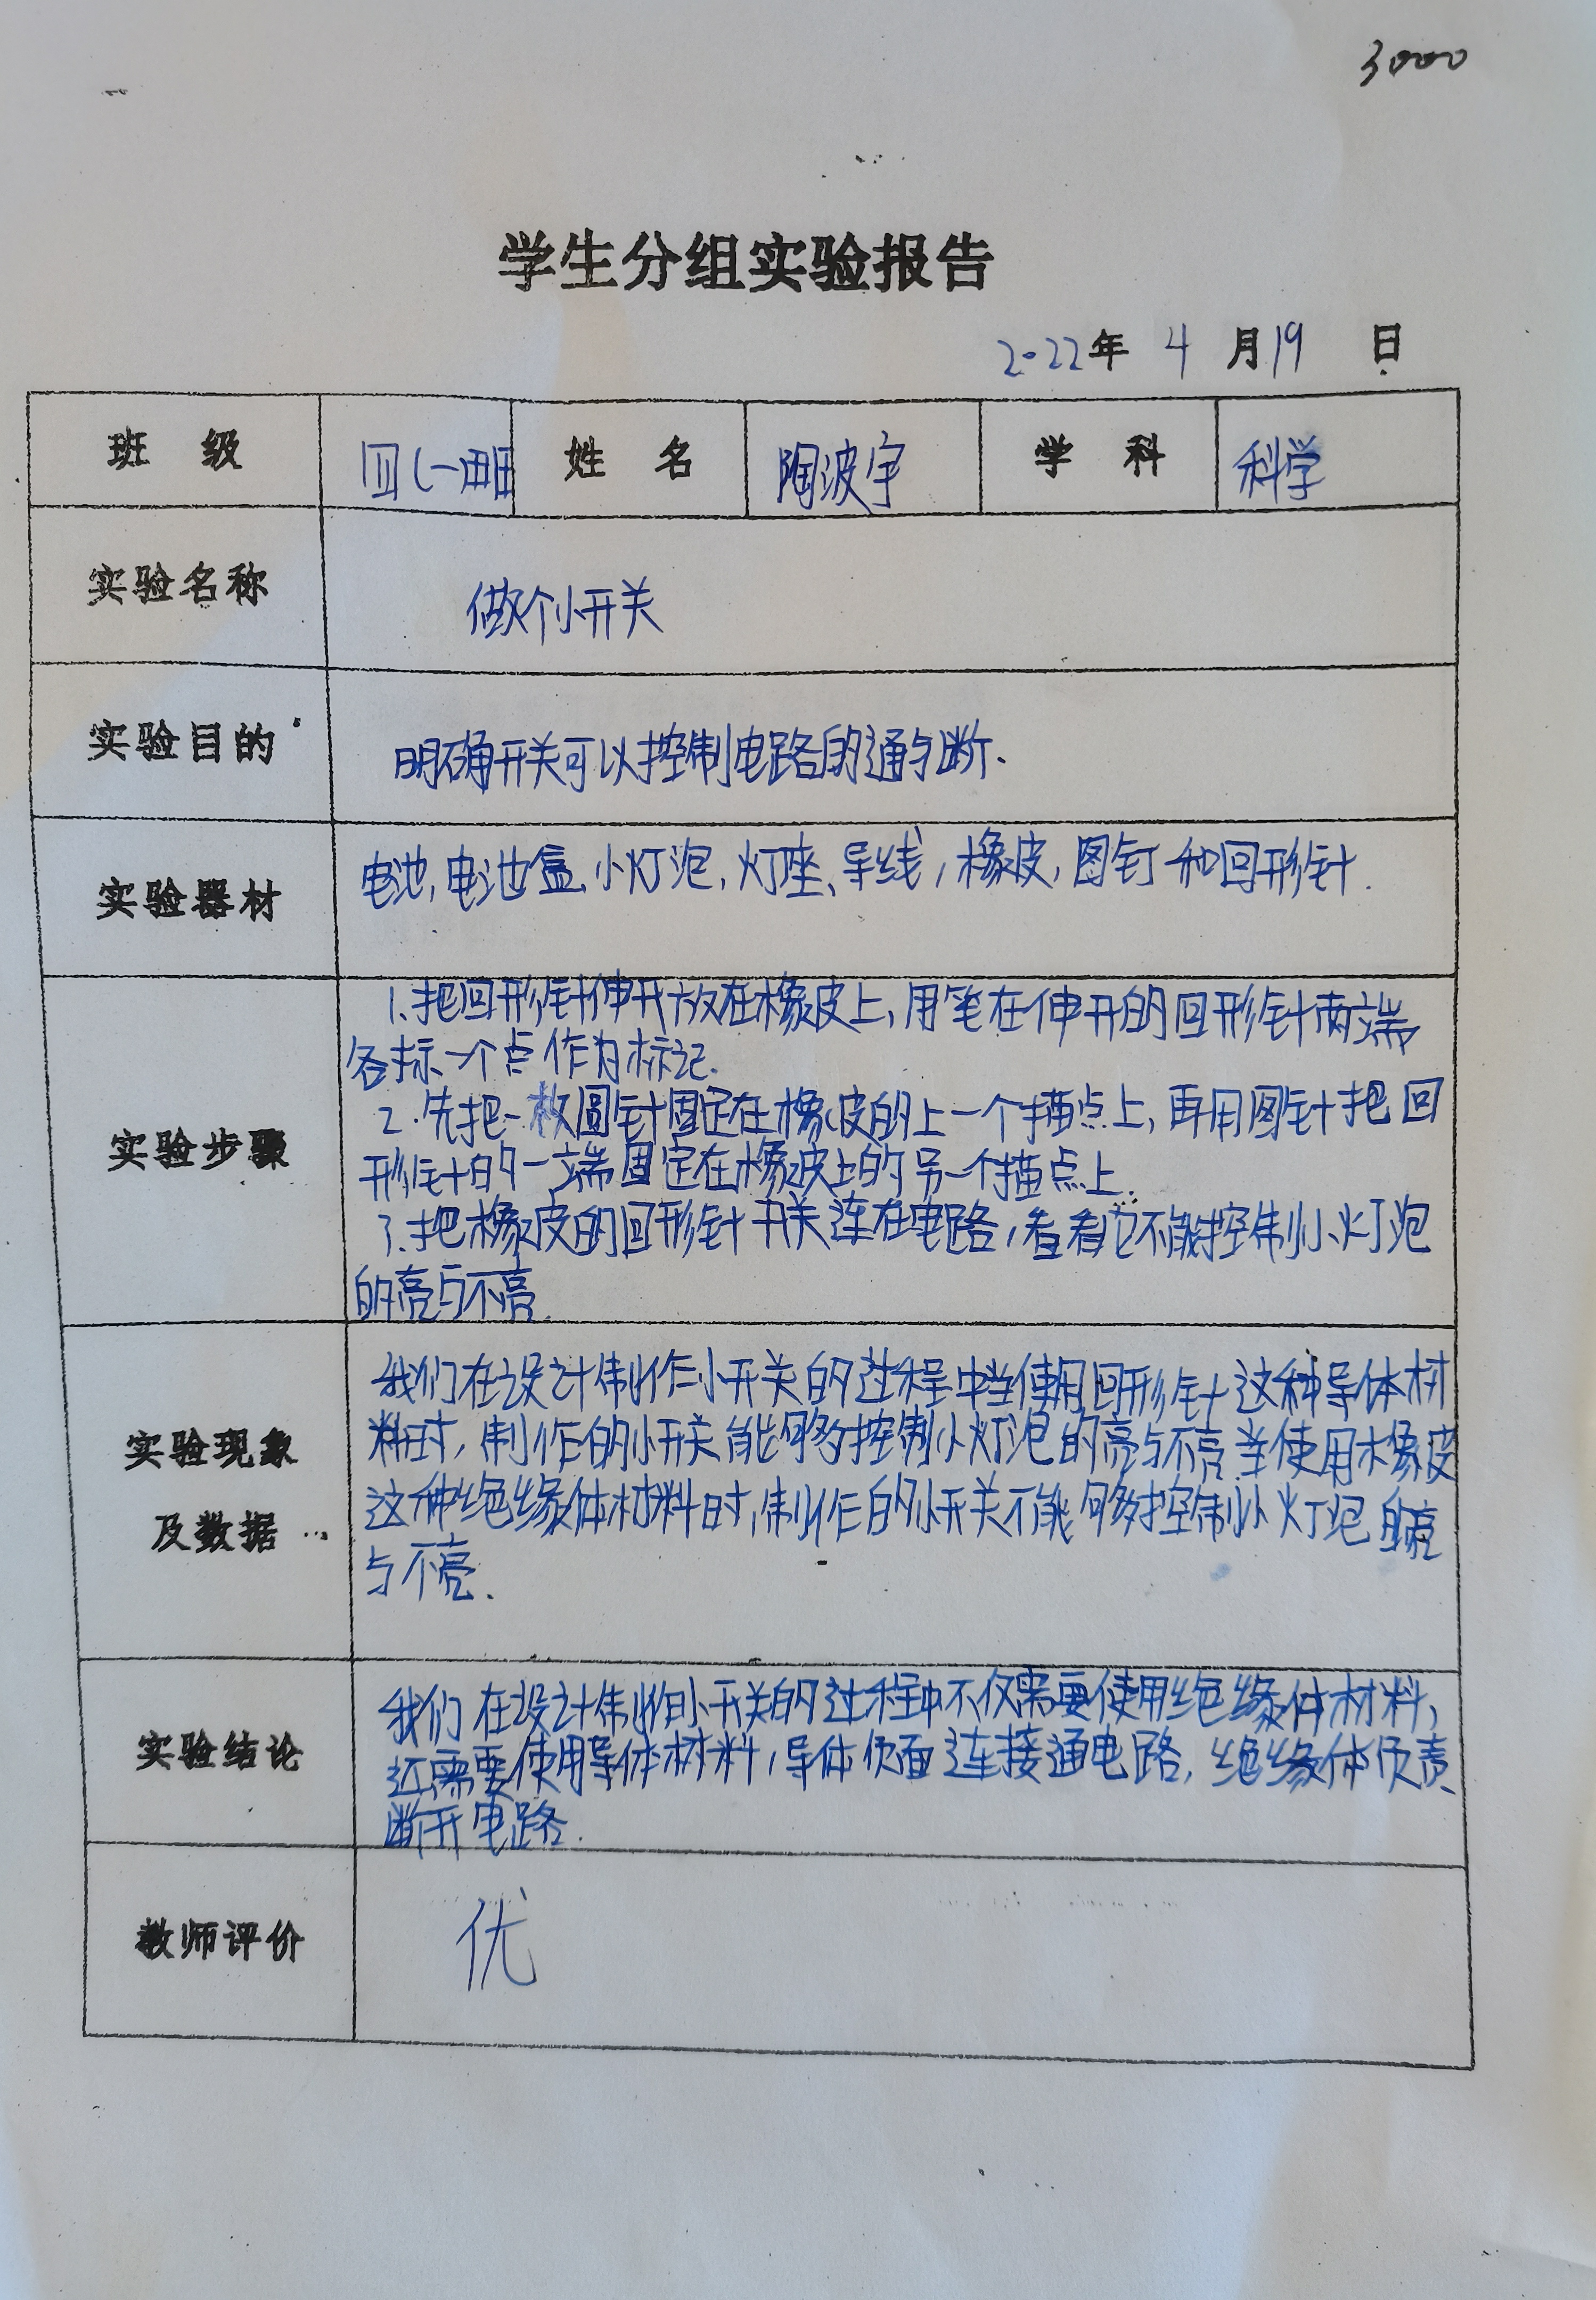 3000
学生分组实验报告
2022年 4 月19 日
班 级 四(一)班 姓 名 陶波宇 学 科 科学
实验名称 做个小开关
实验目的 明确开关可以控制电路的通与断.
实验器材 电池,电池盒、小灯泡,灯座、导线,橡皮,图钉和回形针.
实验步骤
1.把回形针伸开放在橡皮上,用笔在伸开的回形针两端
各标一个点作为标记.
2.先把一枚图针固定在橡皮的上一个描点上,再用图针把回
形针的一端固定在橡皮上的另一个描点上.
3.把橡皮的回形针开关连在电路,看看它不能控制小灯泡
的亮与不亮.
实验现象
及数据
我们在设计制作小开关的过程中当使用回形针这种导体材
料时,制作的小开关能够控制小灯泡的亮与不亮.当使用橡皮
这种绝缘体材料时,制作的小开关不能够控制小灯泡的亮
与不亮.
实验结论
我们在设计制作小开关的过程中不仅需要使用绝缘体材料,
还需要使用导体材料,导体负面连接通电路,绝缘体负责
断开电路.
教师评价 优